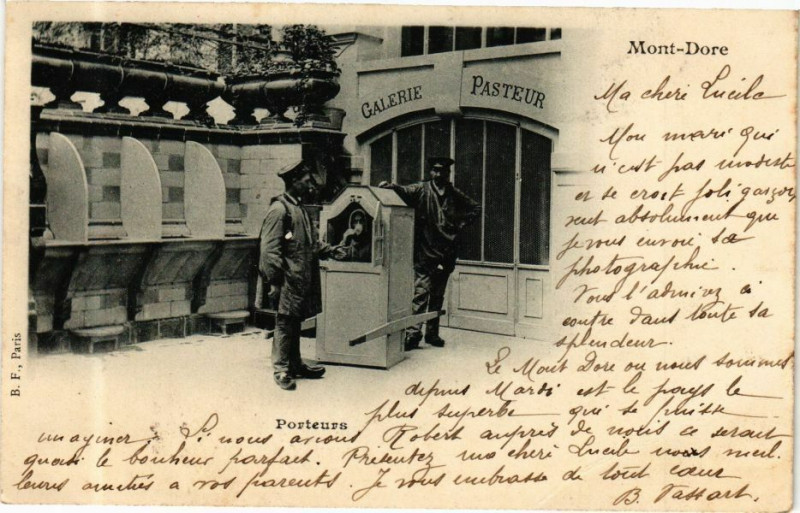 Mont-Dore
GALERIE PASTEUR
Ma cheri Lucile
Mon mari qui
n'est pas modeste
et se croit joli garçon
veut absolument que
je vous envoie sa
photographie.
Vous l'admirez ci
contre dans toute sa
splendeur.
Le Mont Dore ou nous sommes
depuis Mardi est le pays le
plus superbe qui se puisse
imaginer. Si nous avions Robert auprès de nous ce serait
quasi le bonheur parfait. Présentez ma cheri Lucile nos meil.
leures amitiés a vos parents. Je vous embrasse de tout cœur
B. Tassart.
Porteurs
B. F., Paris